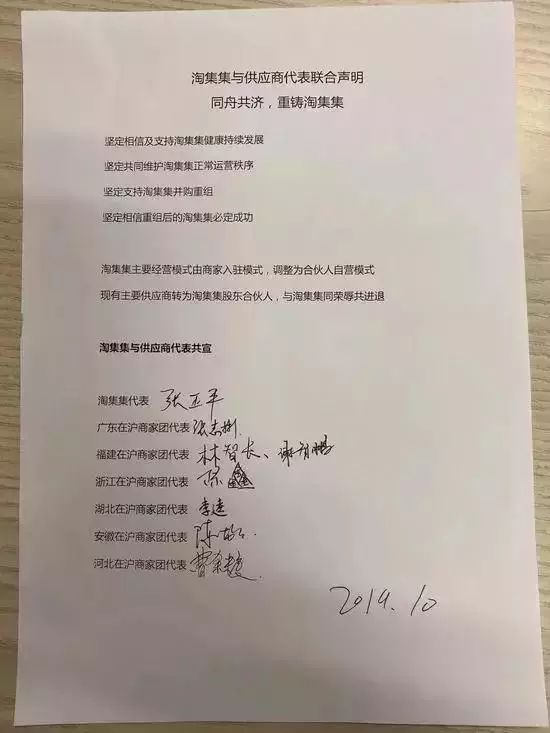 淘集集与供应商代表联合声明
同舟共济，重铸淘集集
坚定相信及支持淘集集健康持续发展
坚定共同维护淘集集正常运营秩序
坚定支持淘集集并购重组
坚定相信重组后的淘集集必定成功
淘集集主要经营模式由商家入驻模式，调整为合伙人自营模式
现有主要供应商转为淘集集股东合伙人，与淘集集同荣辱共进退
淘集集与供应商代表共宣
淘集集代表 张正平
广东在沪商家团代表 张志
福建在沪商家团代表 林智长、谢
浙江在沪商家团代表 陈鑫
湖北在沪商家团代表 李
安徽在沪商家团代表 陈
河北在沪商家团代表 曹
2019.10